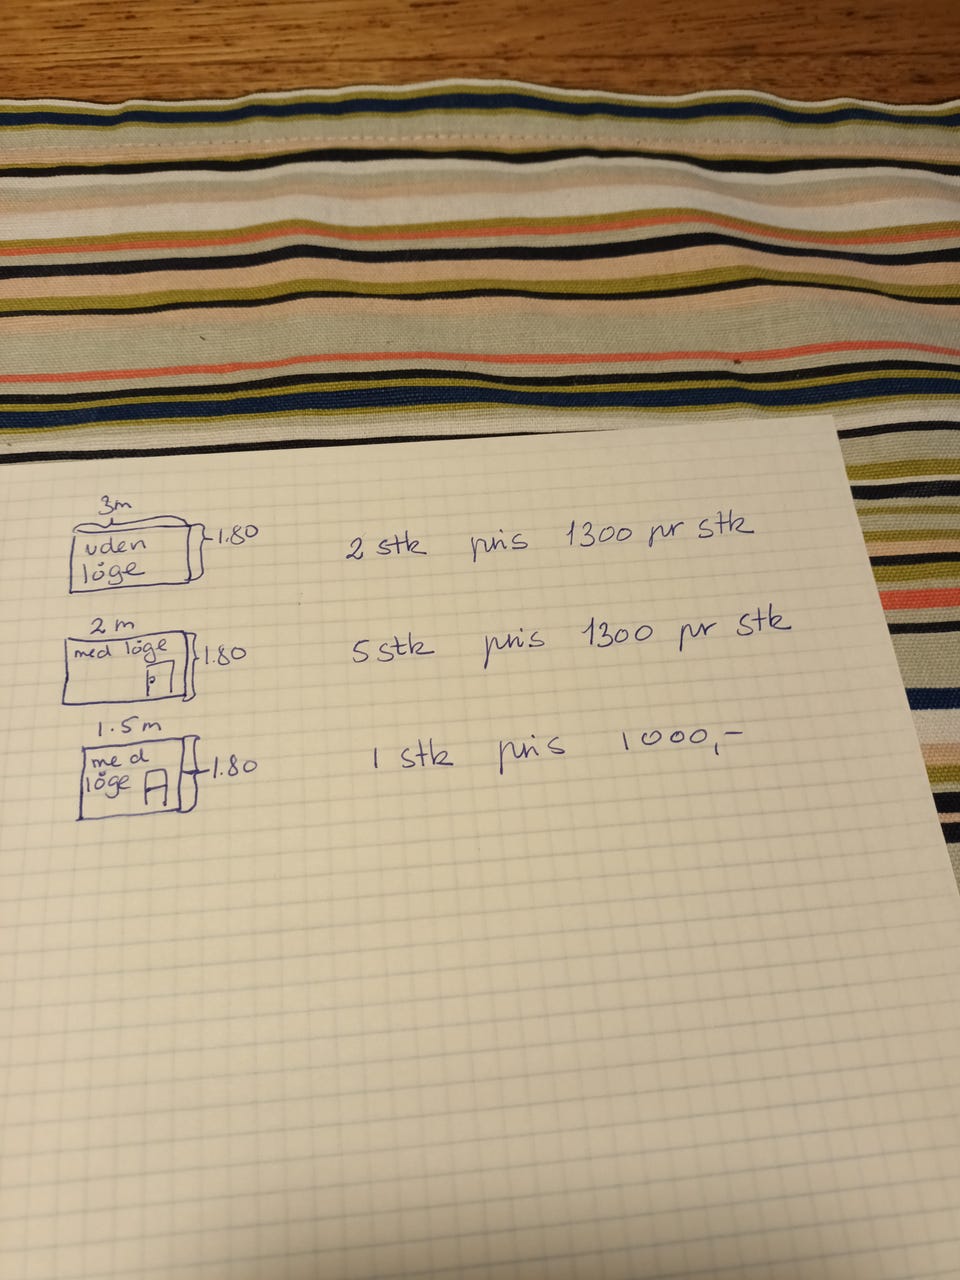 3m
uden
löge
1.80
2 stk pris 1300 pr stk
2 m
med löge
1.80
5 stk pris 1300 pr stk
1.5 m
med
löge
1.80
1 stk pris 1000,-